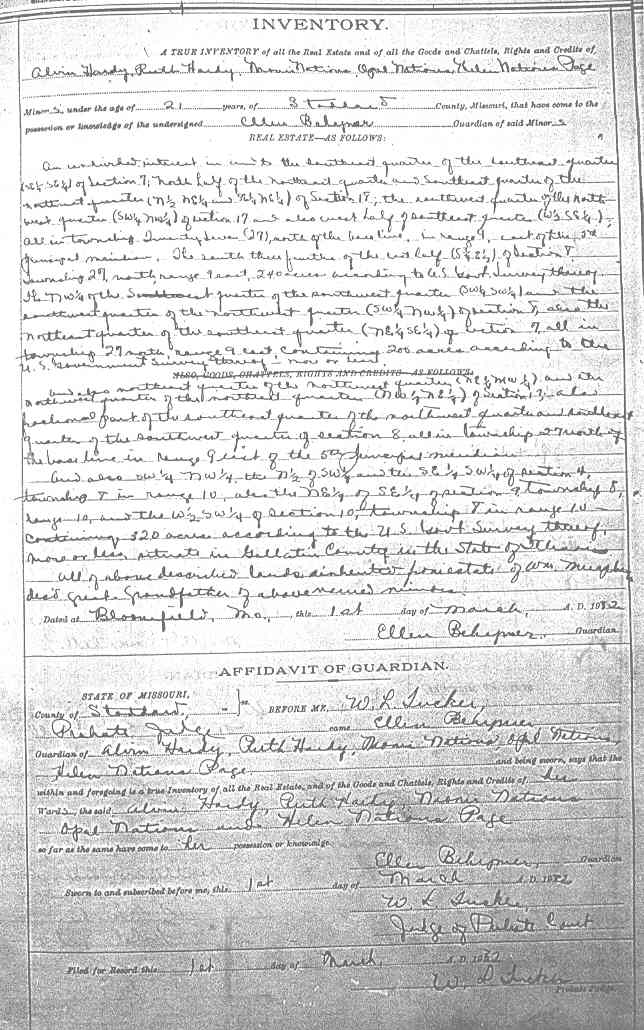 INVENTORY.
A TRUE INVENTORY of all the Real Estate and of all the Goods and Chattels, Rights and Credits of,
Alvin Hardy, Ruth Hardy, Naomi Nations, Opal Nations, Helen Nations Page
Minors, under the age of 21 years, of Stoddard County, Missouri, that have come to the
possession or knowledge of the undersigned Ellen Behrpmer Guardian of said Minors
REAL ESTATE—AS FOLLOWS:
An undivided interest in and to the southeast quarter of the southeast quarter
(SE¼ SE¼) of Section 7; North half of the northeast quarter and Southeast quarter of the
northeast quarter (N½ NE¼ and SE¼ NE¼) of Section 18; the southwest quarter of the north
west quarter (SW¼ NW¼) of section 17 and also west half of southeast quarter (W½ SE¼),
all in township Twenty Seven (27), north of the base line, in range 9, east of the 5th
principal meridian. The south three fourths of the east half of Section 8,
township 27, north, range 9 east, 240 acres according to U.S. Govt. Survey thereof.
The NW¼ of the Southwest quarter of the southwest quarter (SW¼ SW¼) and the
southwest quarter of the northwest quarter (SW¼ NW¼) of section 8, also the
northeast quarter of the southeast quarter (NE¼ SE¼) of section 7, all in
township 27 north, range 9 east containing 200 acres according to the
U.S. Government Survey thereof, more or less
ALSO, GOODS, CHATTELS, RIGHTS AND CREDITS—AS FOLLOWS:
and also northeast quarter of the northwest quarter (NE¼ NW¼) and the
northwest quarter of the northeast quarter (NW¼ NE¼) of Section 17; also
fractional part of the southeast quarter of the northwest quarter and southeast
quarter of the southwest quarter of section 8, all in township 27 north of
the base line in range 9 east of the 5th principal meridian.
And also SW¼ NW¼, the N½ of SW¼ and the SE¼ SW¼ of section 4,
township 8 in range 10, also the NE¼ of SE¼ of section 9 township 8,
range 10, and the W½ SW¼ of Section 10, township 8 in range 10
containing 320 acres according to the U.S. Govt Survey thereof,
more or less situate in Gallatin County in the State of Illinois
All of above described lands inherited from estate of Wm. Murphy
dec'd great Grandfather of above named minors.
Dated at Bloomfield, Mo., this 1st day of March, A. D. 1912
Ellen Behrpmer, Guardian.
AFFIDAVIT OF GUARDIAN.
STATE OF MISSOURI,
County of Stoddard, ss. BEFORE ME, W. L. Tucker,
Probate Judge came Ellen Behrpmer
Guardian of Alvin Hardy, Ruth Hardy, Naomi Nations, Opal Nations,
Helen Nations Page and being sworn, says that the
within and foregoing is a true Inventory of all the Real Estate, and of the Goods and Chattels, Rights and Credits of her
Wards, the said Alvin Hardy, Ruth Hardy, Naomi Nations
Opal Nations and Helen Nations Page
so far as the same have come to her possession or knowledge.
Ellen Behrpmer, Guardian
Sworn to and subscribed before me, this 1st day of March A. D. 1912
W. L. Tucker
Judge of Probate Court
Filed for Record this 1st day of March, A. D. 1912
W. L. Tucker
Probate Judge.